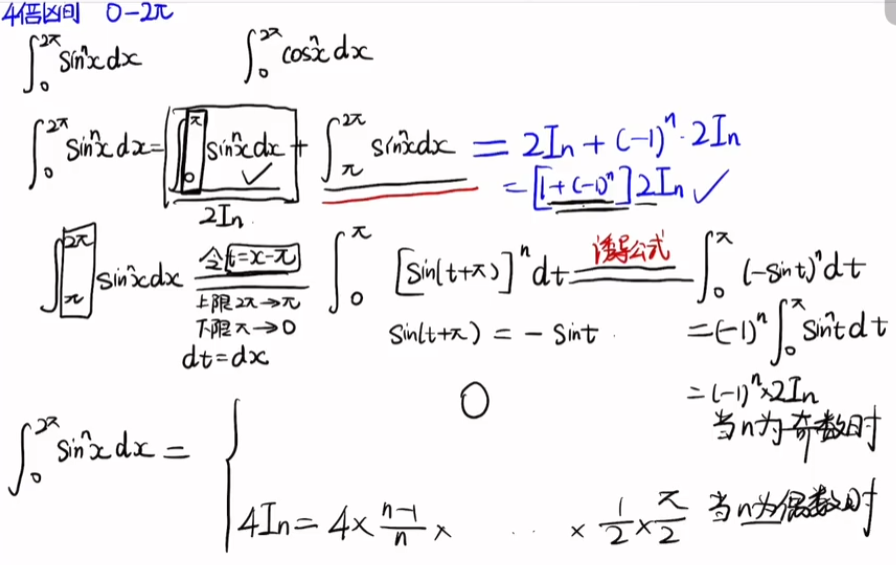 4倍区间 0-2π
∫₀^{2π} sinⁿx dx ∫₀^{2π} cosⁿx dx
∫₀^{2π} sinⁿx dx = ∫₀^{π} sinⁿx dx + ∫_π^{2π} sinⁿx dx = 2Iₙ + (-1)ⁿ·2Iₙ
2Iₙ
= [1+(-1)ⁿ] 2Iₙ ✓
∫_π^{2π} sinⁿx dx 令t=x-π ∫₀^{π} [sin(t+π)]ⁿ dt 诱导公式 ∫₀^{π} (-sint)ⁿ dt
上限2π→π
下限π→0
dt=dx
sin(t+π) = -sint
=(-1)ⁿ ∫₀^{π} sinⁿt dt
=(-1)ⁿ×2Iₙ
∫₀^{2π} sinⁿx dx =
0 当n为奇数时
4Iₙ = 4 × (n-1)/n × ··· × 1/2 × π/2 当n为偶数时